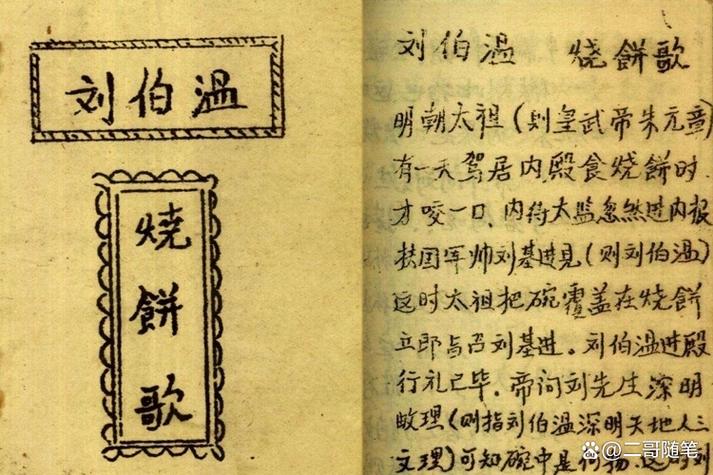 刘伯温
烧餅歌
刘伯温 烧餅歌
明朝太祖(则皇武帝朱元章)
有一天驾居内殿食烧餅时.
才咬一口、内侍太监忽然进内报
扶国军帅刘基进見(则刘伯温)
这时太祖把碗覆盖在烧餅
立即与召刘基进。刘伯温进殿
行礼已毕.帝问刘先生深明
数理(则指刘伯温深明天地人三
文理)可知碗中是何物.
@二哥随笔